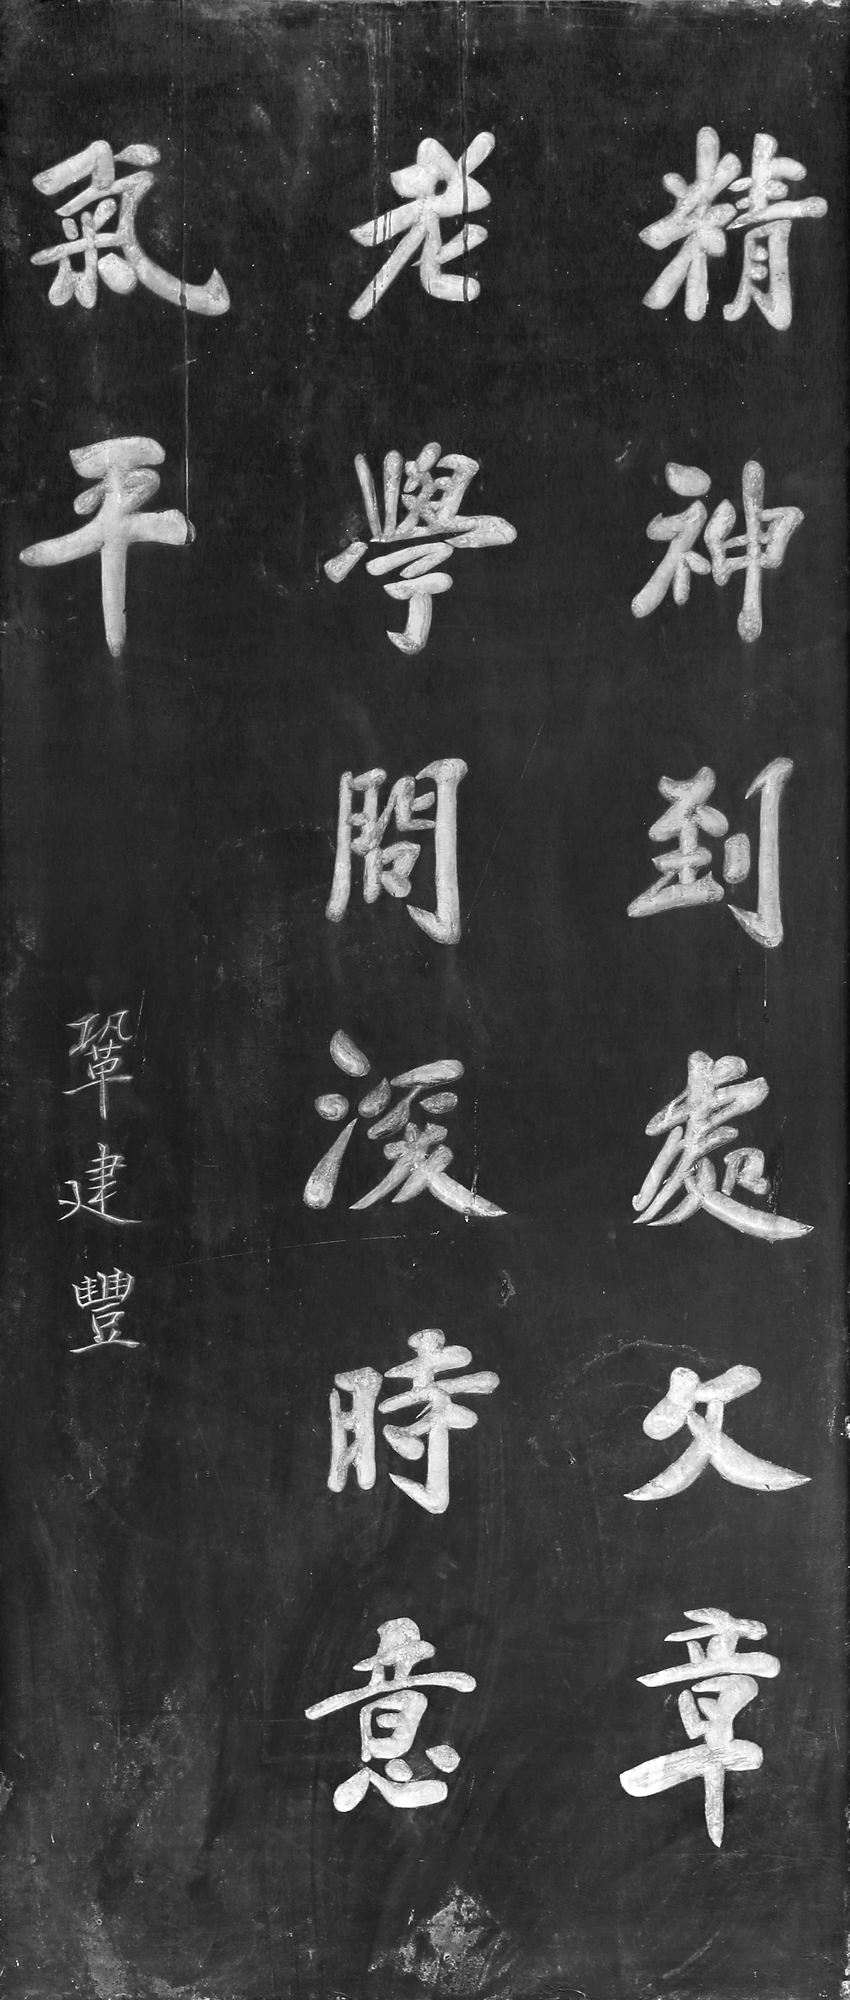 精神到處文章
老學問深時意
氣平
鞏建豐